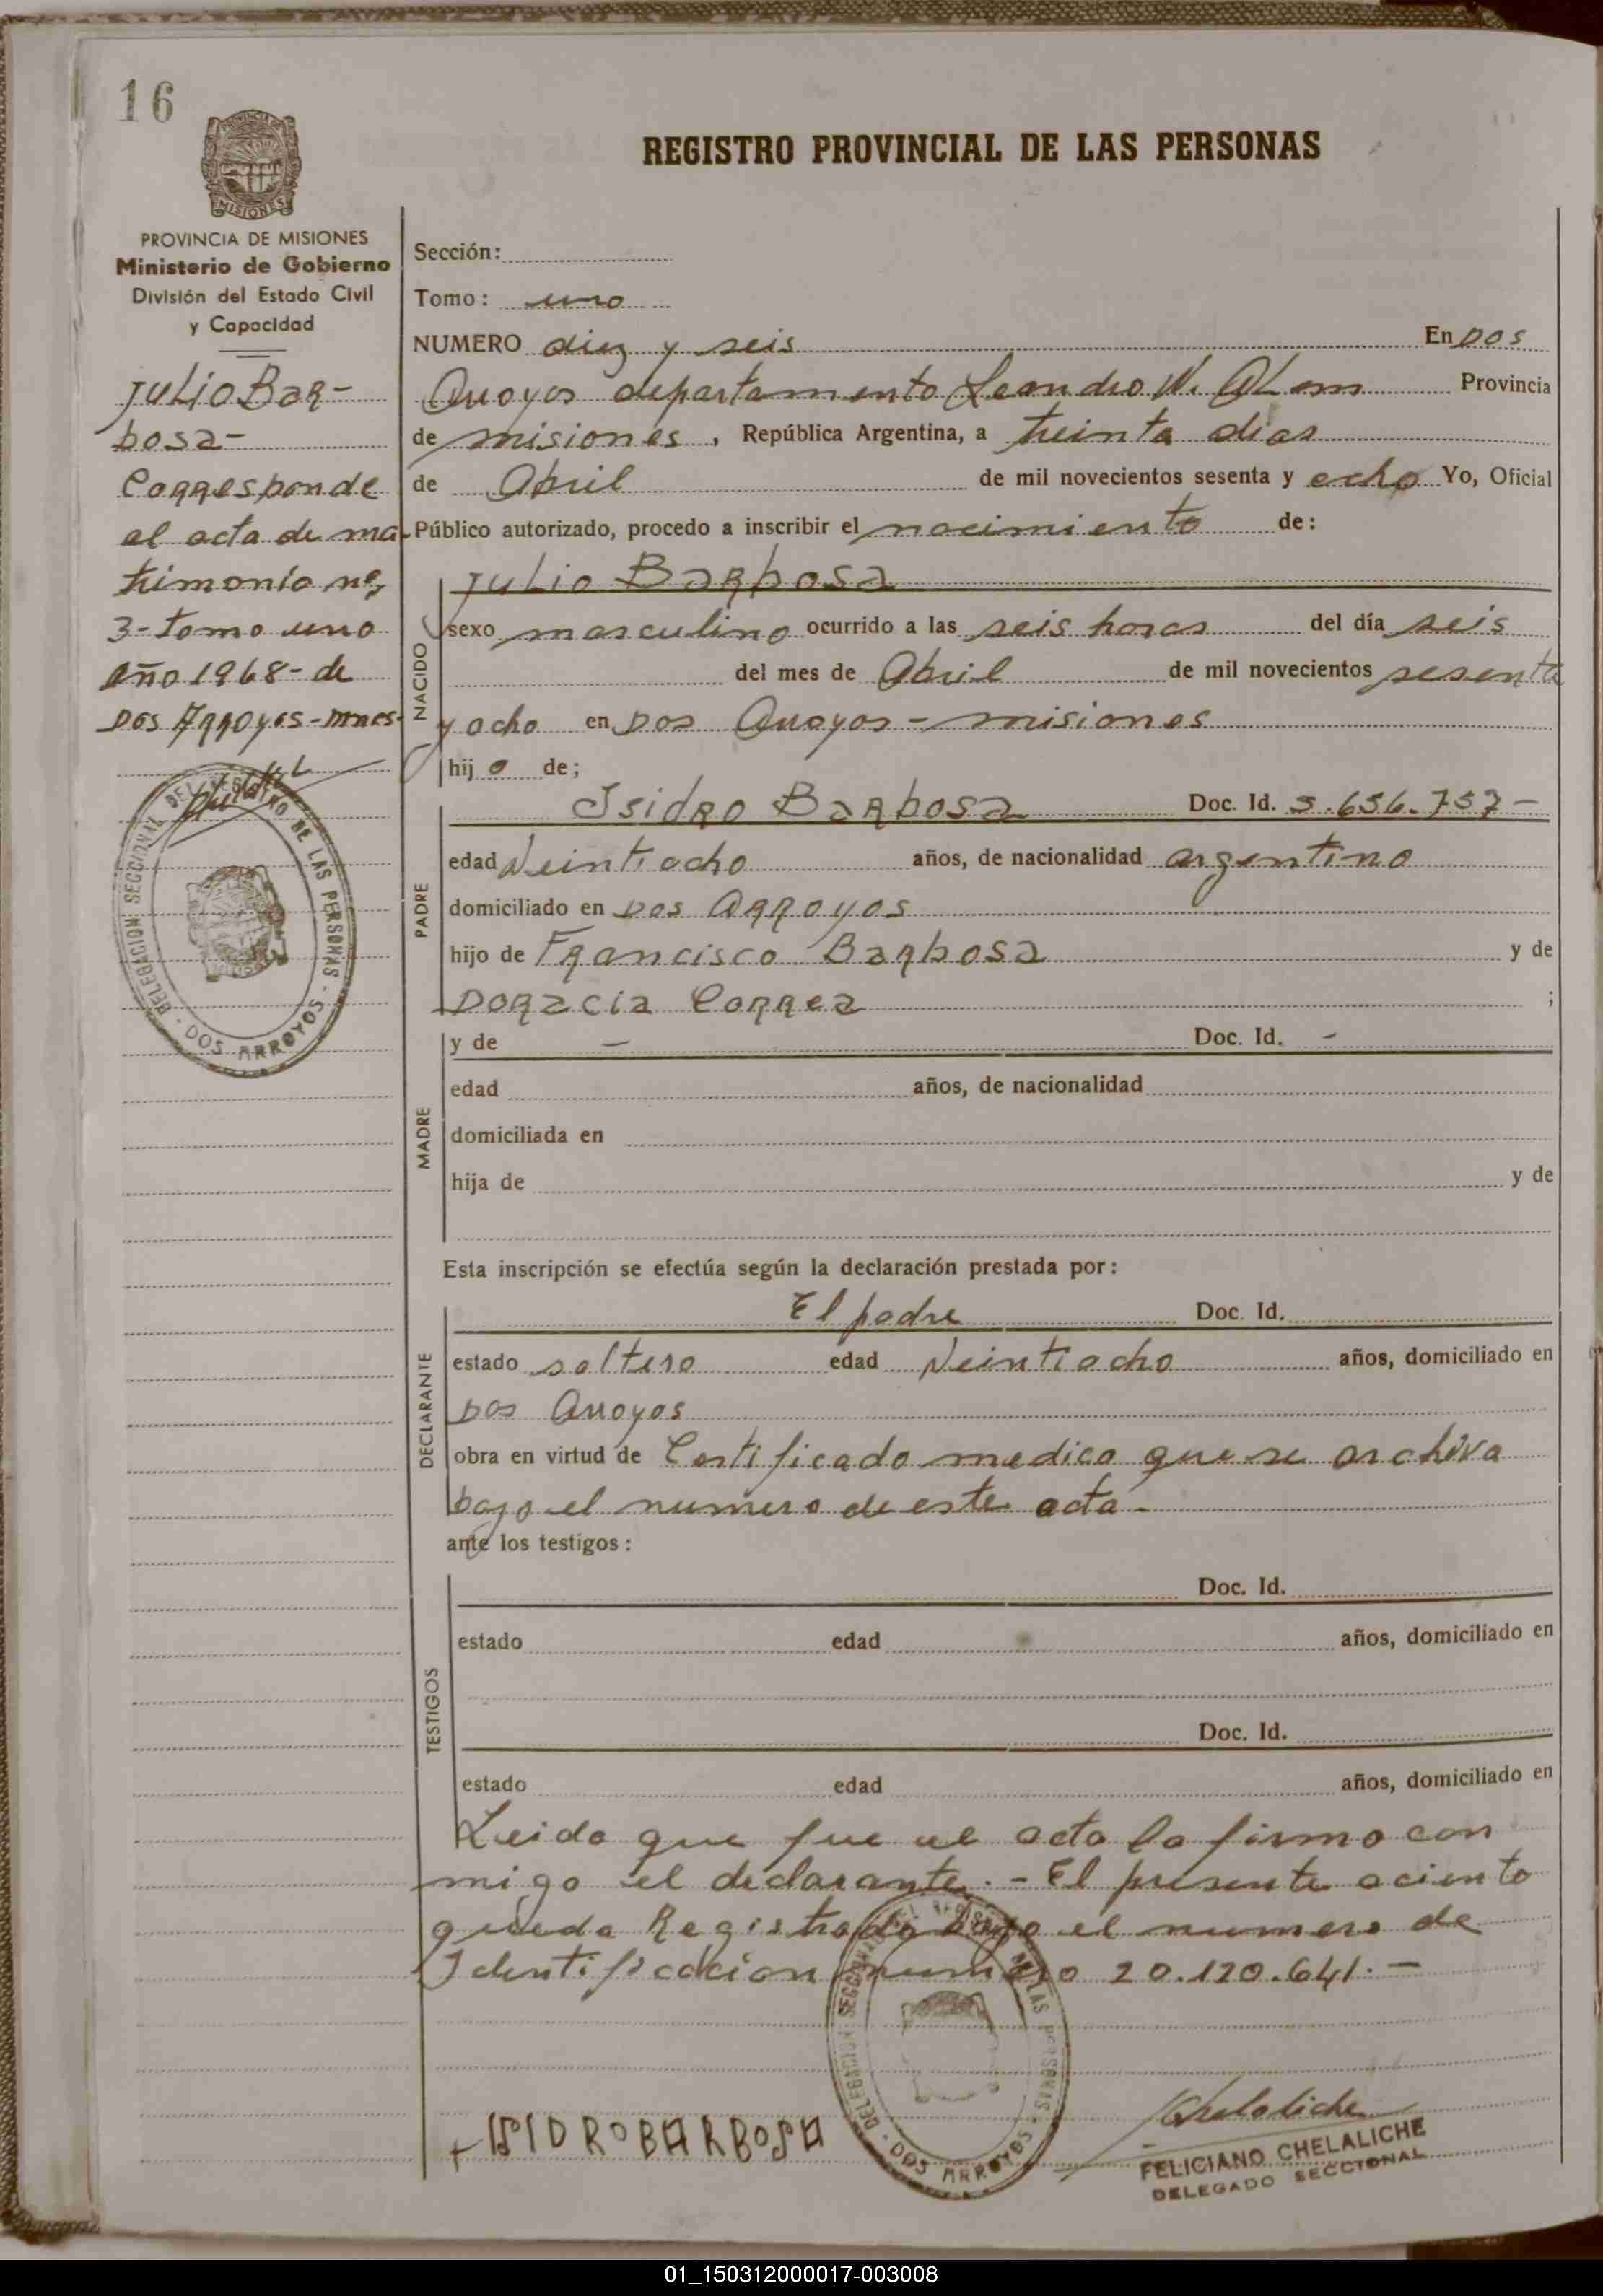 16
MISIONES
REGISTRO PROVINCIAL DE LAS PERSONAS
PROVINCIA DE MISIONES
Ministerio de Gobierno
División del Estado Civil
y Capacidad
Julio Bar-
bosa-
Corresponde
al acta de ma-
trimonio nº,
3- tomo uno
Año 1968- de
Dos Arroyos - mnes-
DELEGACION SECCIONAL DEL REGISTRO DE LAS PERSONAS - DOS ARROYOS -
Sección:
Tomo: uno
NUMERO diez y seis En Dos
Arroyos departamento Leandro N. ALem Provincia
de misiones, República Argentina, a treinta dias
de Abril de mil novecientos sesenta y ocho Yo, Oficial
Público autorizado, procedo a inscribir el nacimiento de:
NACIDO
Julio Barbosa
sexo masculino ocurrido a las seis horas del día seis
del mes de Abril de mil novecientos sesenta
y ocho en Dos Arroyos - misiones
hijo de;
PADRE
Isidro Barbosa Doc. Id. 5.656.757-
edad Veintiocho años, de nacionalidad argentino
domiciliado en Dos Arroyos
hijo de Francisco Barbosa y de
Doracia Correa ;
MADRE
y de - Doc. Id. -
edad años, de nacionalidad
domiciliada en
hija de y de
Esta inscripción se efectúa según la declaración prestada por:
DECLARANTE
El padre Doc. Id.
estado soltero edad Veintiocho años, domiciliado en
Dos Arroyos
obra en virtud de Certificado medico que se archiva
bajo el numero de este acta-
ante los testigos:
TESTIGOS
Doc. Id.
estado edad años, domiciliado en
Doc. Id.
estado edad años, domiciliado en
Leido que fue el acta la firmo con
migo el declarante.- El presente aciento
queda Registrado bajo el numero de
Identificacion numero 20.120.641.-
DELEGACION SECCIONAL DEL REGISTRO DE LAS PERSONAS - DOS ARROYOS -
ISIDRO BARBOSA
Chelaliche
FELICIANO CHELALICHE
DELEGADO SECCIONAL
01_150312000017-003008